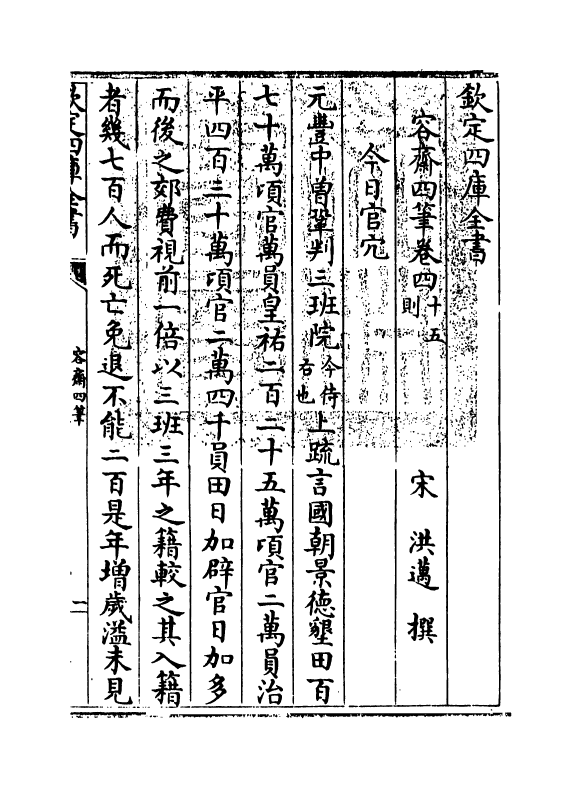 欽定四庫全書
容齋四筆卷四 十五則
宋 洪邁 撰
今日官冗
元豐中曽鞏判三班院 今侍右也 上疏言國朝景德墾田百
七十萬項官萬員皇祐二百二十五萬項官二萬員治
平四百三十萬項官二萬四千員田日加辟官日加多
而後之郊費視前一倍以三班三年之籍較之其入籍
者幾七百人而死亡免退不能二百是年增歲溢未見
欽定四庫全書
容齋四筆
一